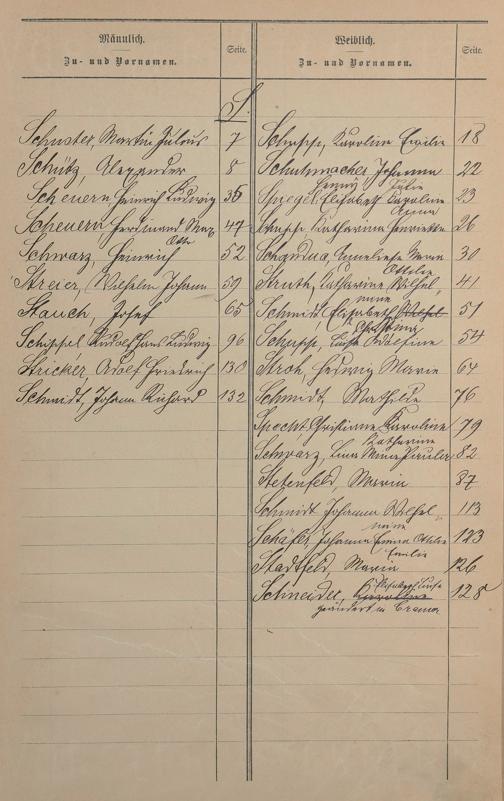 Männlich.
Zu- und Vornamen.
Seite.
S.
Schuster, Martin Julius 7
Schütz, Alexander 8
Scheuern Heinrich Ludwig 35
Scheuern Ferdinand Max 47
Otto
Schwarz, Heinrich 52
Streier, Wilhelm Johann 59
Stauch, Josef 65
Schissel Rudolf Hans Ludwig 96
Stricker, Adolf Friedrich 130
Schmidt, Johann Richard 132
Weiblich.
Zu- und Vornamen.
Seite.
Schupp, Karoline Emilie 18
Schuhmacher Johanna 22
Fanny Julie
Spiegel, Elisabeth Karoline 23
Anna
Katharina Henriette 26
Anneliese Maria 30
Ottilie
Struth, Katharine Wilhel- 41
mine
Schmidt, Elisabeth Wilhel 51
Christina
Schupp, Luise 54
Stroh, Hedwig Marie 64
Schmidt, Mathilde 76
Specht Christiane Karoline 79
Katharine
Schwarz, Lina Minna Pauline 82
Stetenfeld, Maria 87
Schmidt Johanna Wilhel- 113
mine
Schäfer, Johanna Emma Ottilie 123
Emilie
Stadtfeld, Maria 126
Elisabeth Luise
Schneider, Karoline 128
geändert in Cramer